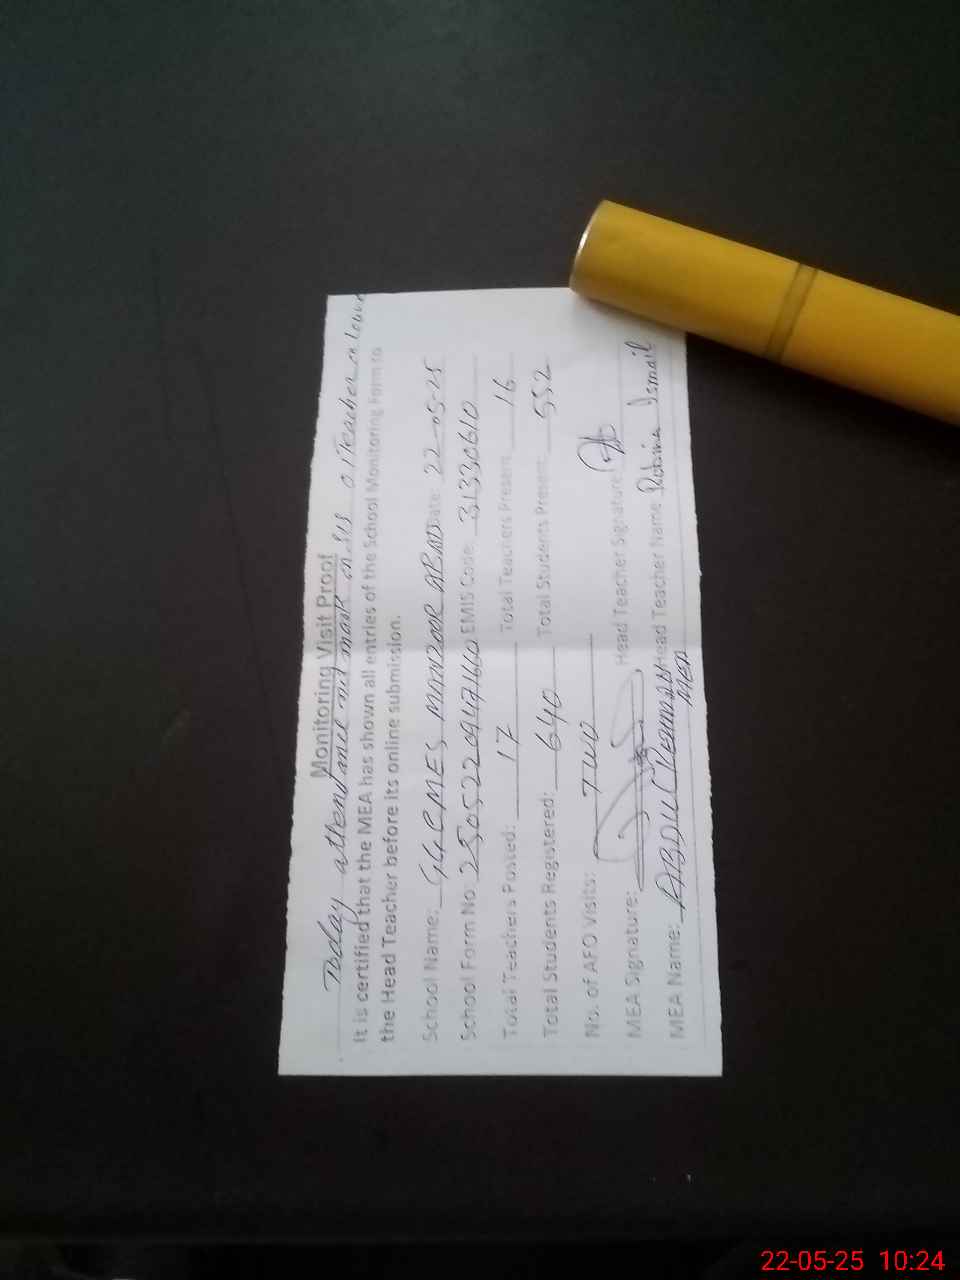 Monitoring Visit Proof
Today attend and not mark on SIS 01 Teacher on leave
It is certified that the MEA has shown all entries of the School Monitoring Form to
the Head Teacher before its online submission.
School Name: GGCMES MANZOOR ABAD Date: 22-05-25
School Form No: EMIS Code: 31330610
Total Teachers Posted: 17 Total Teachers Present: 16
Total Students Registered: 640 Total Students Present: 552
No. of AEO Visits: TWO
MEA Signature: Head Teacher Signature:
MEA Name: ABDUL Head Teacher Name: Robina Ismail
MEA
22-05-25 10:24